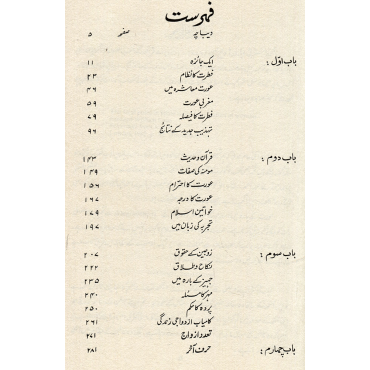 فہرست
دیباچہ صفحہ ۵
باب اوّل : ایک جائزہ ۱۱
فطرت کا نظام ۲۳
عورت معاشرہ میں ۴۶
مغربی عورت ۵۹
فطرت کا فیصلہ ۷۹
تہذیب جدید کے نتائج ۹۶
باب دوم : قرآن و حدیث ۱۴۳
مومنہ کی صفات ۱۴۹
عورت کا احترام ۱۵۶
عورت کا درجہ ۱۶۷
خواتین اسلام ۱۷۹
تجربہ کی زبان میں ۱۹۷
باب سوم : زوجین کے حقوق ۲۰۷
نکاح و طلاق ۲۲۲
جہیز کے بارہ میں ۲۳۵
مہر کا مسئلہ ۲۴۰
پردہ کا حکم ۲۵۰
کامیاب ازدواجی زندگی ۲۶۱
تعدد ازواج ۲۷۱
باب چہارم : حرف آخر ۲۸۱